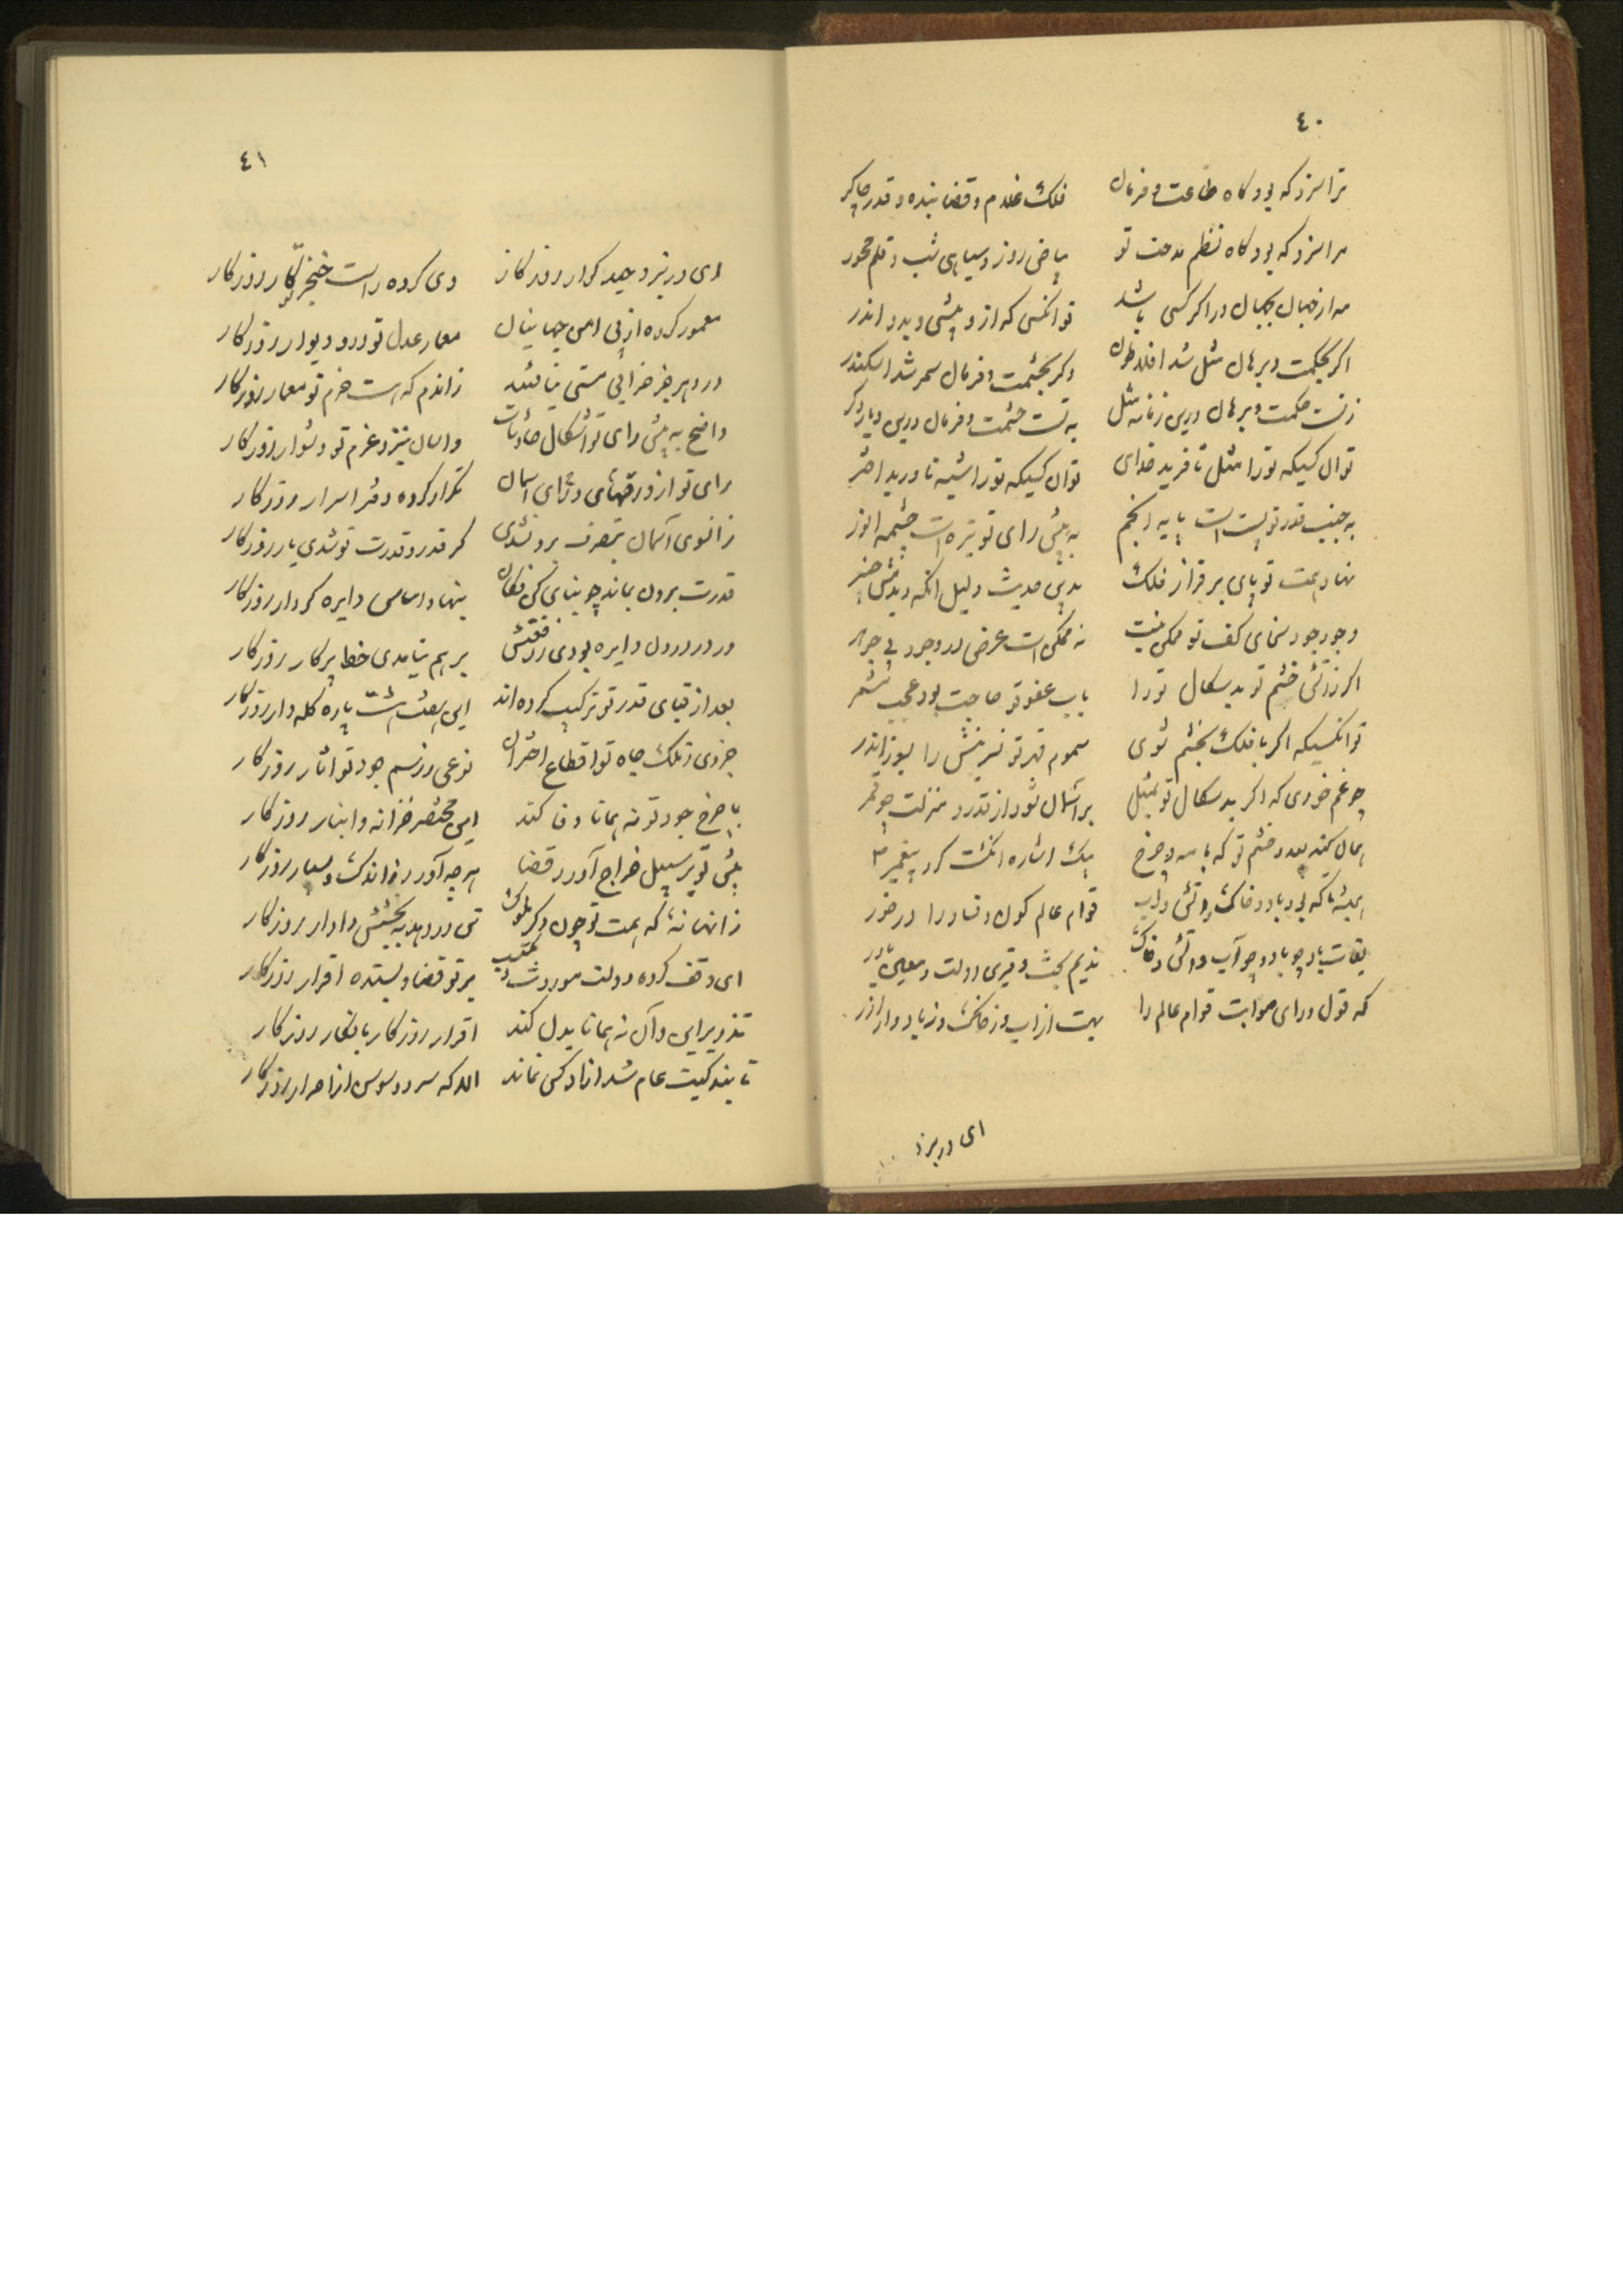 ٤٠
ترا سزد که بود کاه طاعت و فرمان فلک غلام و قضا بنده و قدر چاکر
مرا سزد که بود کاه نظم مدحت تو بیاض روز و سیاهی شب و قلم محور
اکر بحکمت و برهان مثل شد افلاطون وکر بحشمت و فرمان سمر شد اسکندر
ز تست حکمت و برهان درین زمانه مثل به تست حشمت و فرمان درین دیار
توان کسیکه تورا مثل نافرید خدای توان کسیکه تورا شبه ناورید اختر
به جنب قدر تو پست است پایه انجم به پیش رای تو تیره است چشمه انور
نهاد همت تو پای بر فراز فلک بدین حدیث دلیل انکه
وجود جود سخای کف تو ممکن نیست نه ممکن است عرض در وجود بی جوهر
اکر ز اتش خشم تو بد سکال تورا باب عفو تو حاجت بود عجب مشمر
تو انکسیکه اکر با فلک بخشم شوی سموم قهر تو
چو غم خوری که اکر بد سکال تو بمثل بر آسمان شود از قدر و منزلت چو قمر
همان کند بعدو خشم تو که با مه چرخ بیک اشاره انکشت کرد پیغمبر
همیشه تا که بود باد و خاک و اتش و آب قوام عالم کون و فساد را در خور
بقات باد چو باد و چو آب و اتش و خاک ندیم بخت و قرین دولت و معین
که قول و رای صوابت قوام عالم را بهست از اب و ز خاک و ز باد و از آذر
ای در نبرد
٤١
ای در نبرد حیدر کرار روزکار وی کرده راست خنجر تو کار روزکار
معمور کرده از پی امن جهانیان معمار عدل تو در و دیوار روزکار
در دهر جز خرابی مستی نیافتند زاندم که هست حزم تو معمار روزکار
واضح به پیش رای تو اشکال حادثات واسان بنزد عزم تو دشوار روزکار
رای تو از ورقهای آسمان تکرار کرده دفتر اسرار روزکار
زانسوی آسمان بتصرف برون شدی کر قدر و قدرت تو شدی یار روزکار
قدرت برون بماند چو بنای کن فکان بنهاد اساس دایره کردار روزکار
ور در درون دایره بودی بر هم نیامدی خط پرکار روزکار
بعد از قبای قدر تو ترکیب کرده اند این هفت هشت پاره کله وار روزکار
جزوی ز ملک جاه تو اقطاع اختران نوعی ز رسم جود تو اثار روزکار
با خرج جود تو نه همانا وفا کند این مختصر خزانه و انبار روزکار
پیش تو بر سبیل خراج آورد قضا هر چه آورد ز اندک و بسیار روزکار
زانها نه که همت تو چون دکر ملوک تن در دهد به بخشش و ادرار روزکار
ای وقف کرده دولت موروث و مکتسب بر تو قضا و بستده اقرار روزکار
تذویر این و آن نه همانا بدل کند اقرار روزکار بانکار روزکار
تا بندکیت عام شد ازاد کس نماند الا که سرو و سوسن از احرار روزکار